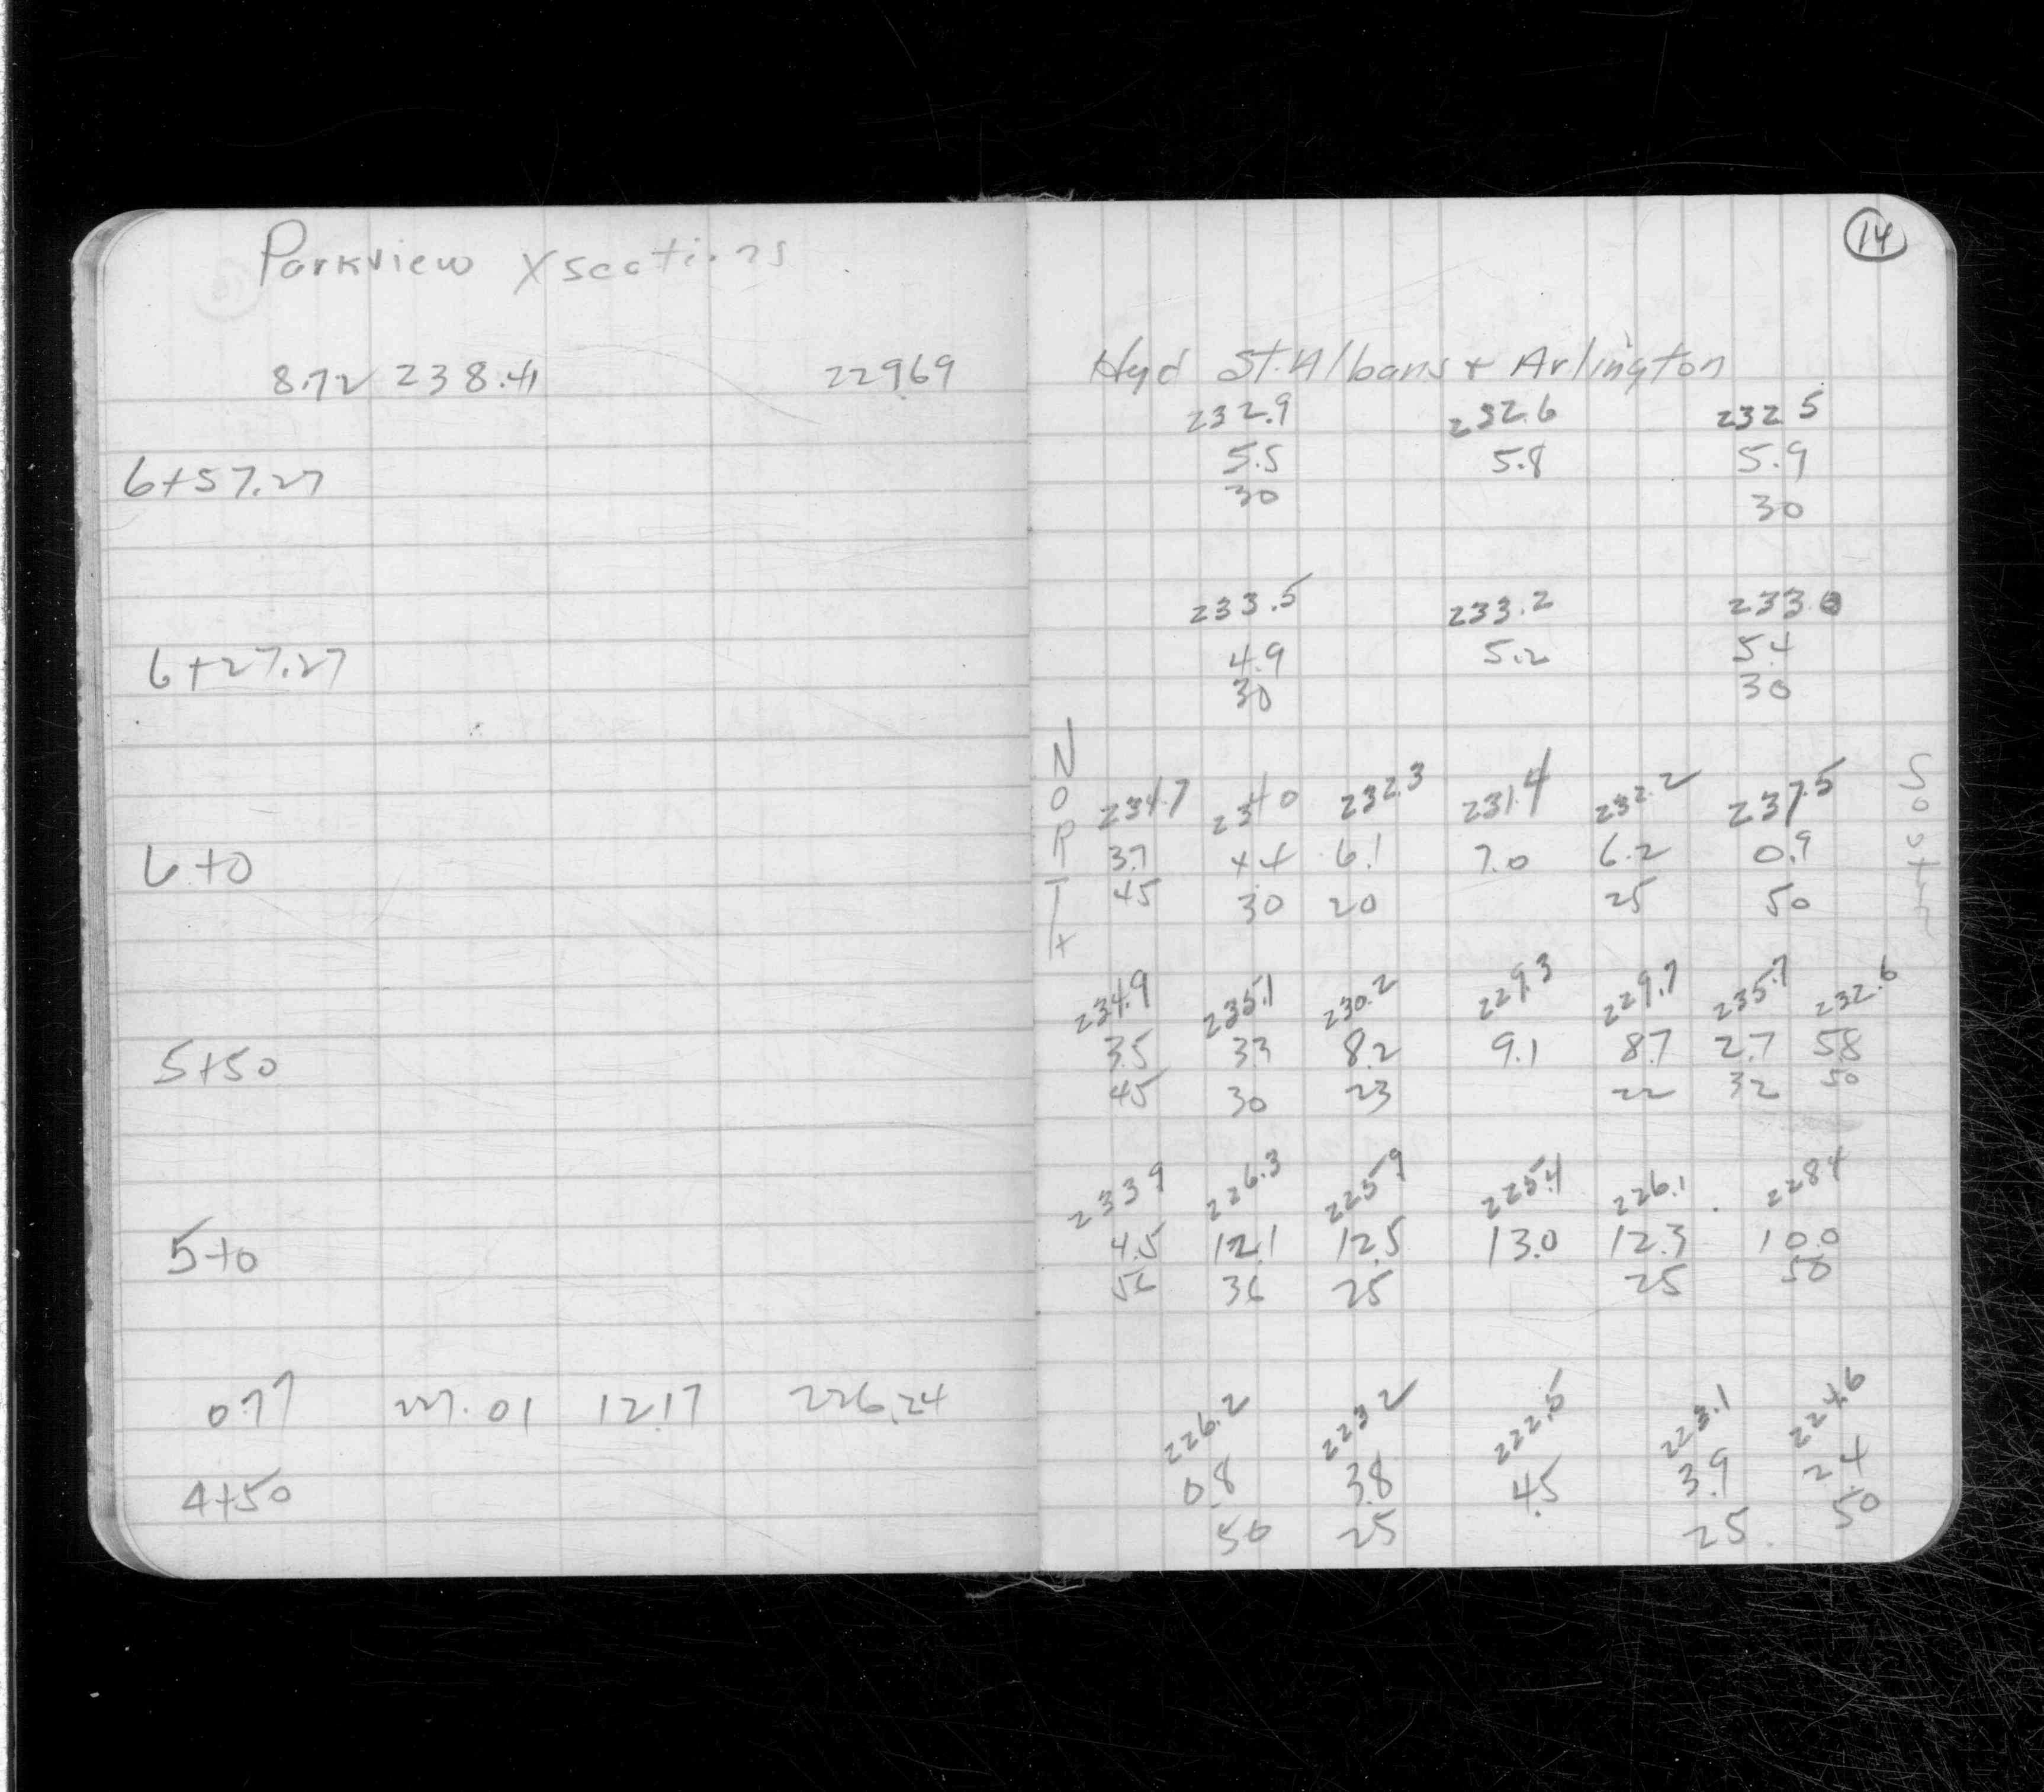 Parkview Xsections
8.72 238.41 229.69
6+57.27
6+27.27
6+0
5+50
5+0
0.77 227.01 12.17 226.24
4+50
14
Hyd St. Albans + Arlington
232.9 232.6 232.5
5.5 5.8 5.9
30 30
233.5 233.2 233.0
4.9 5.2 5.4
30 30
NORTH
South
234.7 234.0 232.3 231.4 232.2 237.5
3.7 4.4 6.1 7.0 6.2 0.9
45 30 20 25 50
234.9 235.1 230.2 229.3 229.7 235.7 232.6
3.5 3.3 8.2 9.1 8.7 2.7 5.8
45 30 23 22 32 50
233.9 226.3 225.9 225.4 226.1 228.4
4.5 12.1 12.5 13.0 12.3 10.0
56 36 25 25 50
226.2 223.2 222.5 223.1 224.6
0.8 3.8 4.5 3.9 2.4
50 25 25 50